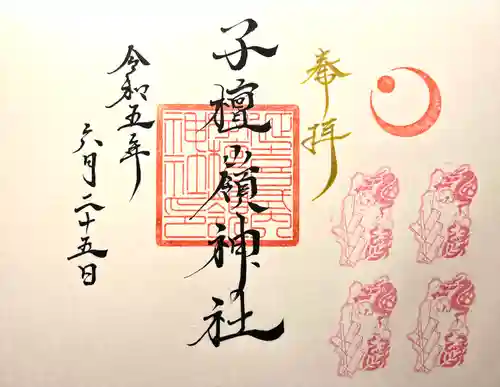 奉拝
子檀嶺神社
令和五年
六月二十五日